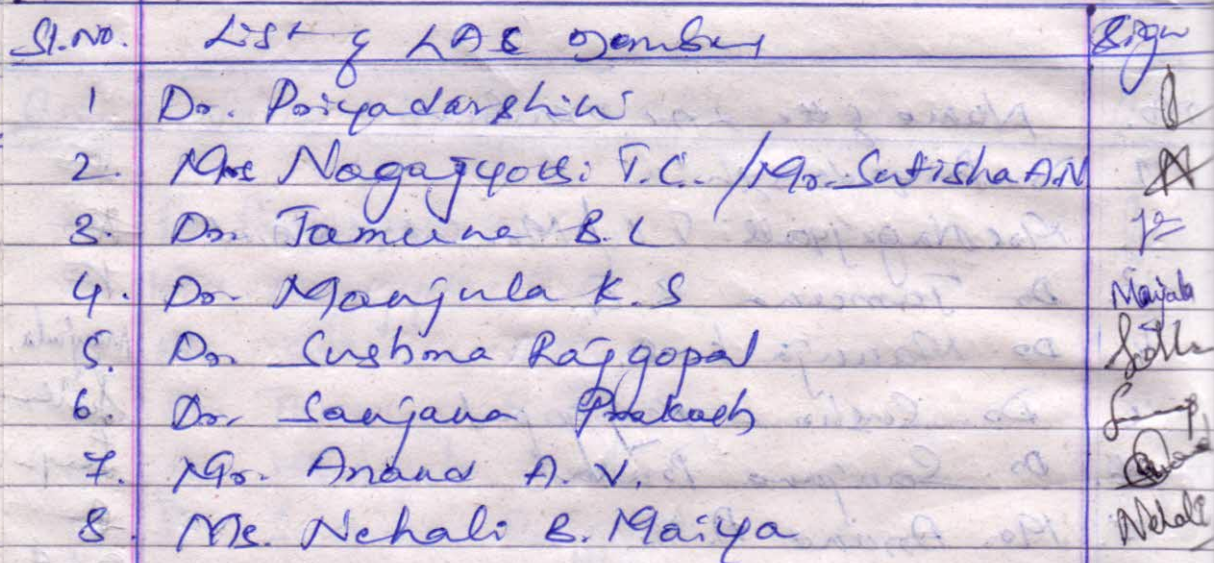 Sl.No. List of LAC members Sign
1 Dr. Priyadarshini
2. Mrs Nagajyothi T.C. / Mr. Satisha A.N
3. Dr. Jamuna B.L
4. Dr. Manjula K.S Manjula
5. Dr. Sushma Rajgopal
6. Dr. Sanjana Prakash
7. Mr. Anand A.V.
8. Ms. Nehali B. Maiya Nehali